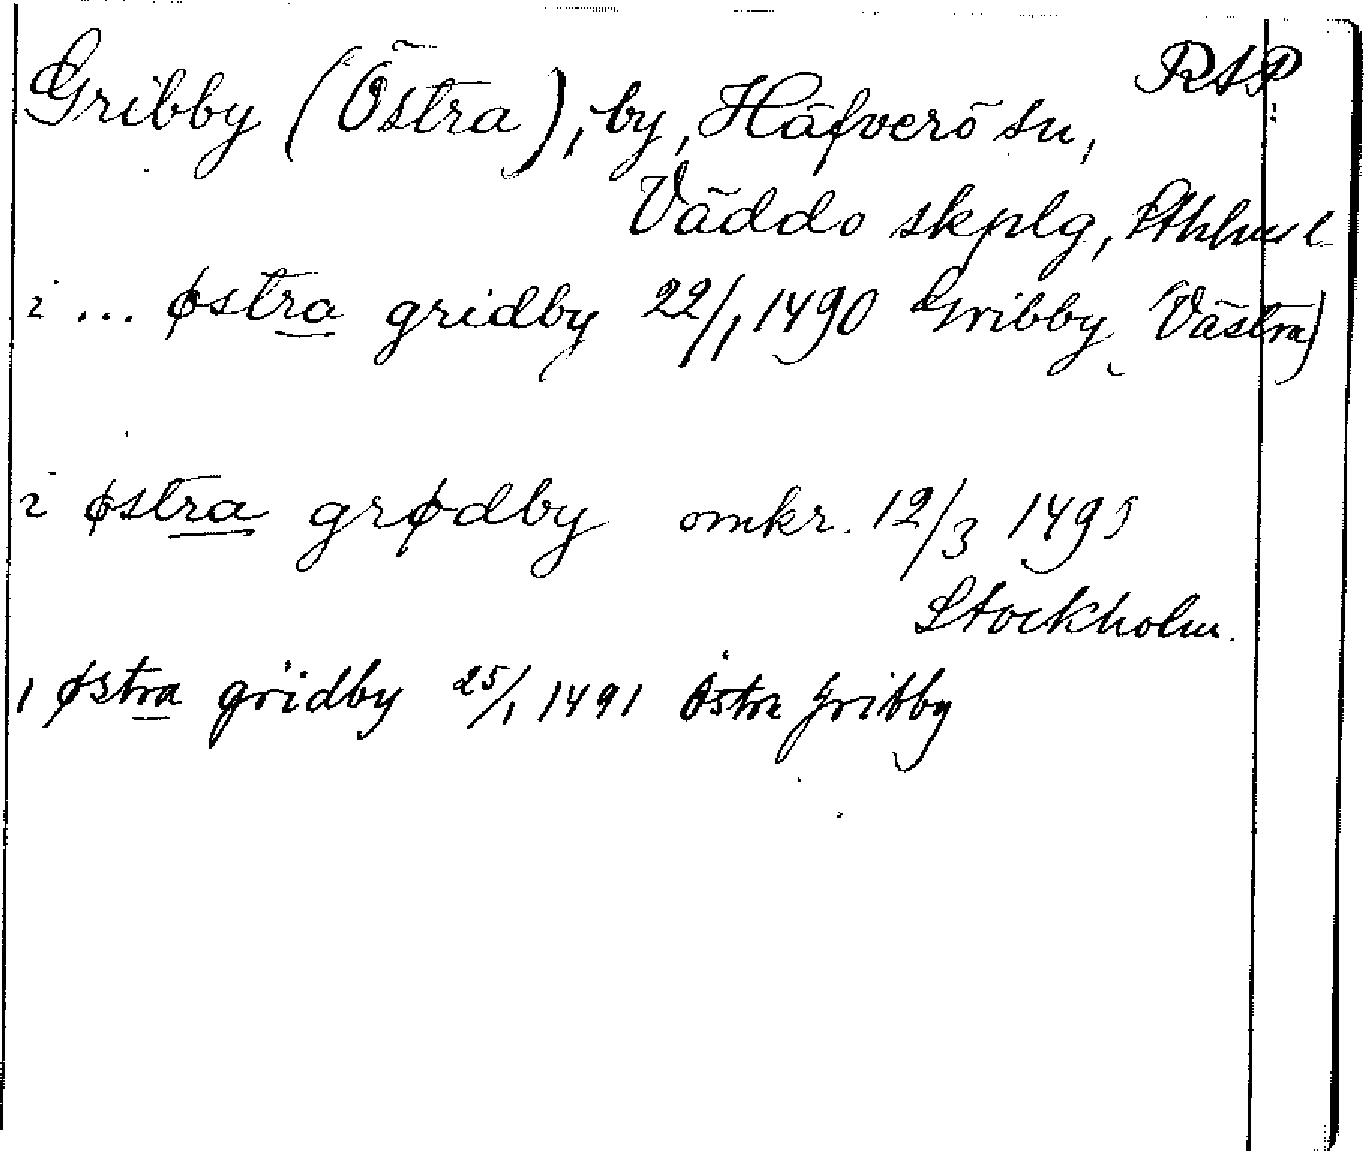 RAP
Gribby (Östra), by, Häfverö sn,
Väddö skplg, Sthlms l
i ... østra gridby 22/1 1490 Gribby (Västra)
i østra grødby omkr. 12/3 1495
Stockholm.
i østra gridby 25/1 1491 Östra Gribby